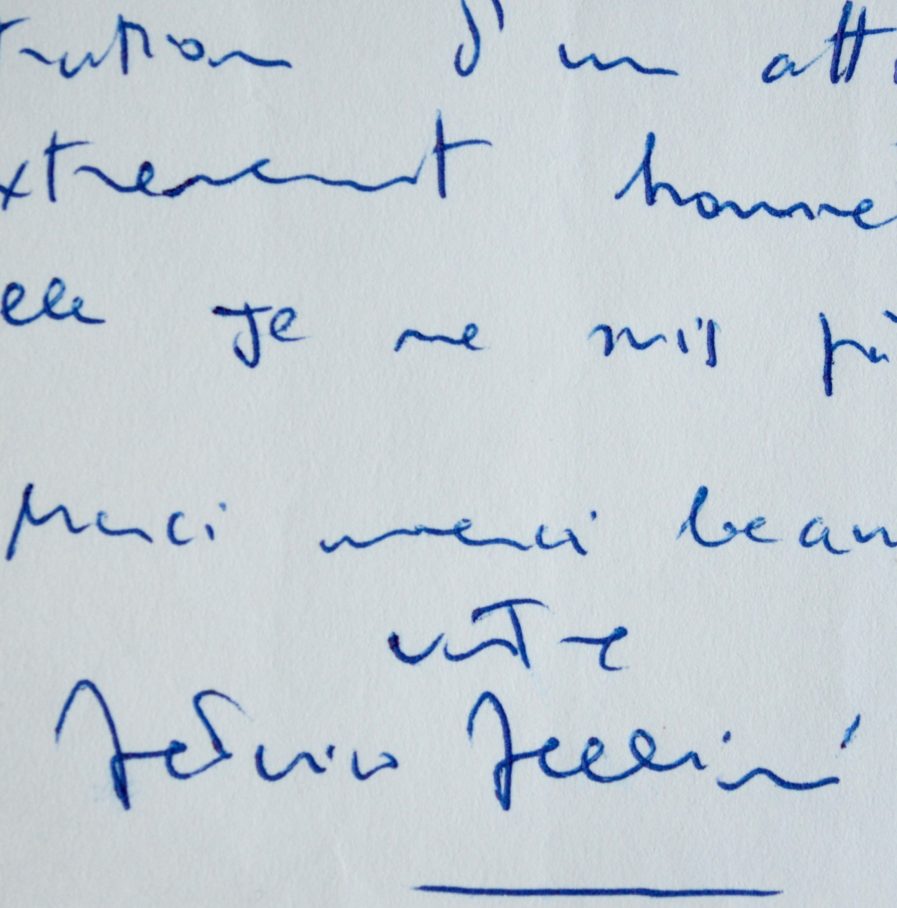 d'un att
xtremement honne
elle Je ne suis pa
Merci merci beau
votre
Federico Fellini